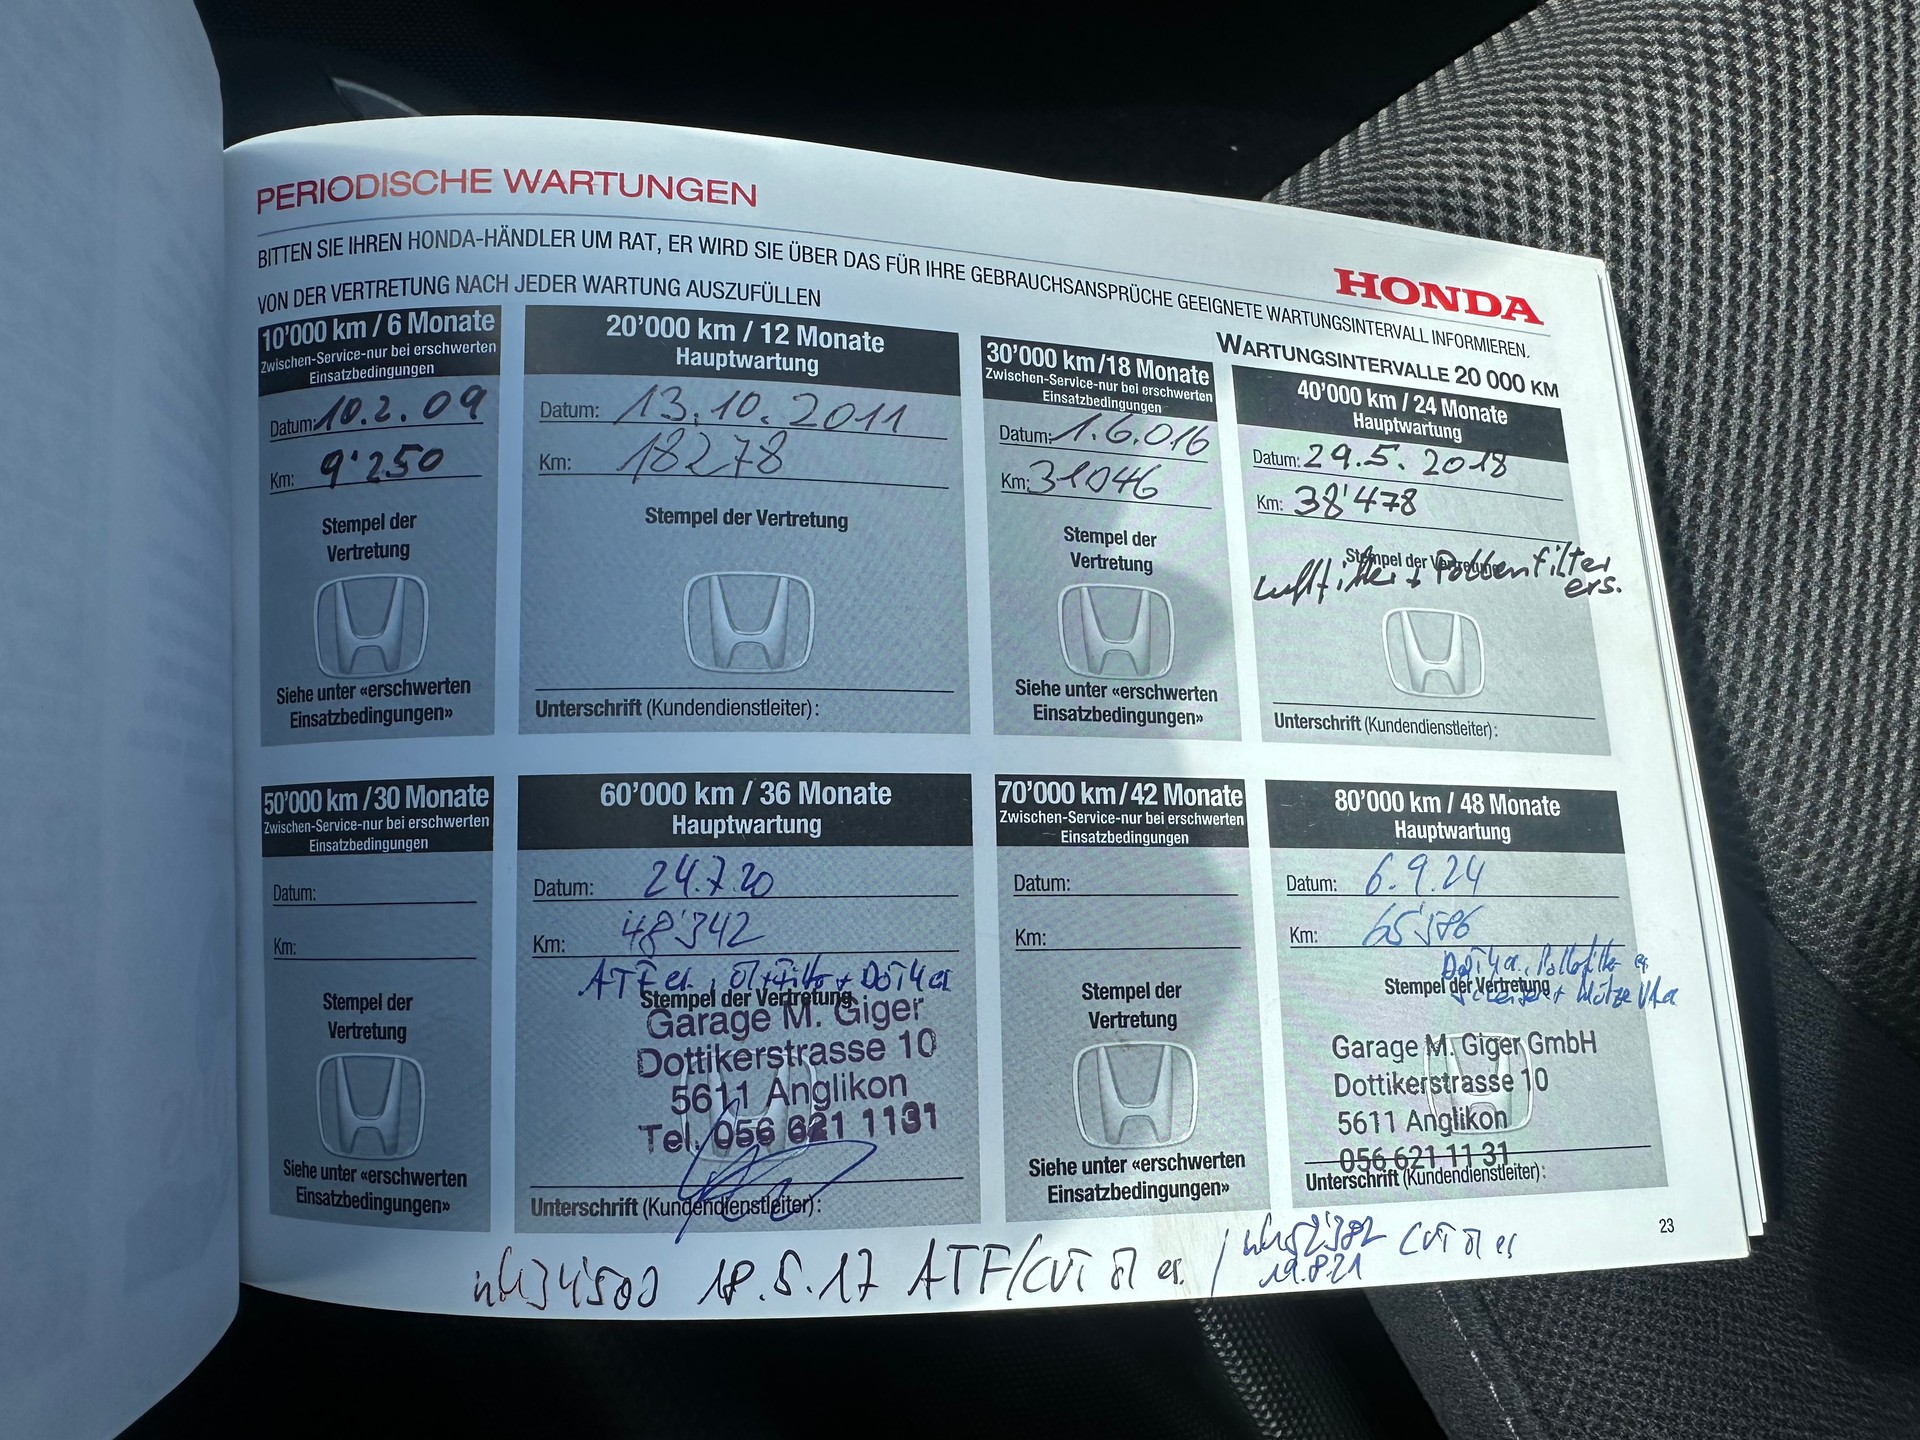 PERIODISCHE WARTUNGEN
BITTEN SIE IHREN HONDA-HÄNDLER UM RAT, ER WIRD SIE ÜBER DAS FÜR IHRE GEBRAUCHSANSPRÜCHE GEEIGNETE WARTUNGSINTERVALL INFORMIEREN.
VON DER VERTRETUNG NACH JEDER WARTUNG AUSZUFÜLLEN
HONDA
WARTUNGSINTERVALLE 20 000 KM
10'000 km / 6 Monate
Zwischen-Service-nur bei erschwerten
Einsatzbedingungen
Datum: 10.2.09
Km: 9'250
Stempel der
Vertretung
Siehe unter «erschwerten
Einsatzbedingungen»
20'000 km / 12 Monate
Hauptwartung
Datum: 13.10.2011
Km: 18278
Stempel der Vertretung
Unterschrift (Kundendienstleiter):
30'000 km/18 Monate
Zwischen-Service-nur bei erschwerten
Einsatzbedingungen
Datum: 1.6.016
Km: 31046
Stempel der
Vertretung
Siehe unter «erschwerten
Einsatzbedingungen»
40'000 km / 24 Monate
Hauptwartung
Datum: 29.5.2018
Km: 38'478
Stempel der Vertretung
Luftfilter + Pollenfilter
ers.
Unterschrift (Kundendienstleiter):
50'000 km/30 Monate
Zwischen-Service-nur bei erschwerten
Einsatzbedingungen
Datum:
Km:
Stempel der
Vertretung
Siehe unter «erschwerten
Einsatzbedingungen»
60'000 km / 36 Monate
Hauptwartung
Datum: 24.7.20
Km: 48'342
ATF er. Öl+Filter + DOT4 er
Stempel der Vertretung
Garage M. Giger
Dottikerstrasse 10
5611 Anglikon
Tel. 056 621 1131
Unterschrift (Kundendienstleiter):
70'000 km/42 Monate
Zwischen-Service-nur bei erschwerten
Einsatzbedingungen
Datum:
Km:
Stempel der
Vertretung
Siehe unter «erschwerten
Einsatzbedingungen»
80'000 km / 48 Monate
Hauptwartung
Datum: 6.9.24
Km:
DOT4 er. Pollefilter er
Stempel der Vertretung
Garage M. Giger GmbH
Dottikerstrasse 10
5611 Anglikon
056 621 11 31
Unterschrift (Kundendienstleiter):
23
34'500 18.5.17 ATF/CVT Öl er. / 52'382 CVT Öl er
19.8.21